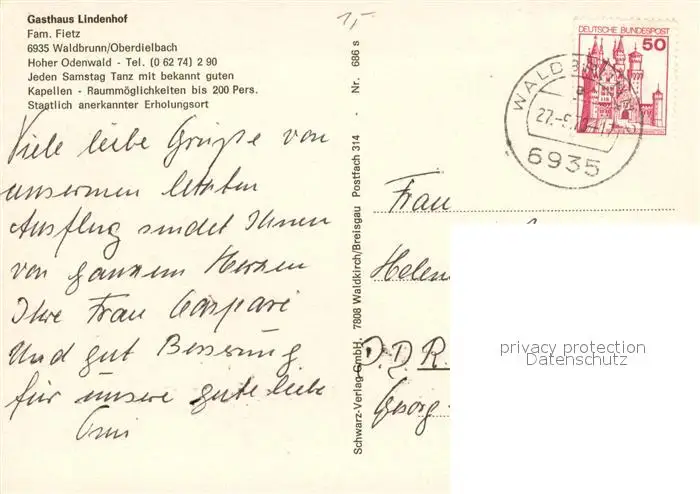 Gasthaus Lindenhof
Fam. Fietz
6935 Waldbrunn/Oberdielbach
Hoher Odenwald - Tel. (0 62 74) 2 90
Jeden Samstag Tanz mit bekannt guten
Kapellen - Raummöglichkeiten bis 200 Pers.
Staatlich anerkannter Erholungsort
Viele liebe Grüße von
unserem letzten
Ausflug sendet Ihnen
von ganzem Herzen
Ihre Frau Caspari
Und gut Besserung
für unsere gute liebe
Omi
1,-
Schwarz-Verlag GmbH. 7808 Waldkirch/Breisgau Postfach 314 - Nr. 686 s
DEUTSCHE BUNDESPOST
50
WALDB
27.-9.
6935
Frau
Helen
D.D.R.
Georg-
privacy protection
Datenschutz